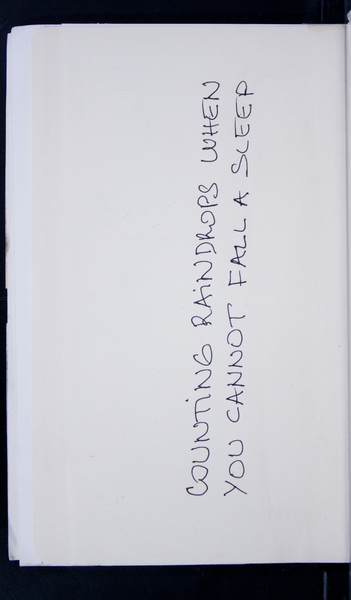 COUNTING RAINDROPS WHEN
YOU CANNOT FALL A SLEEP